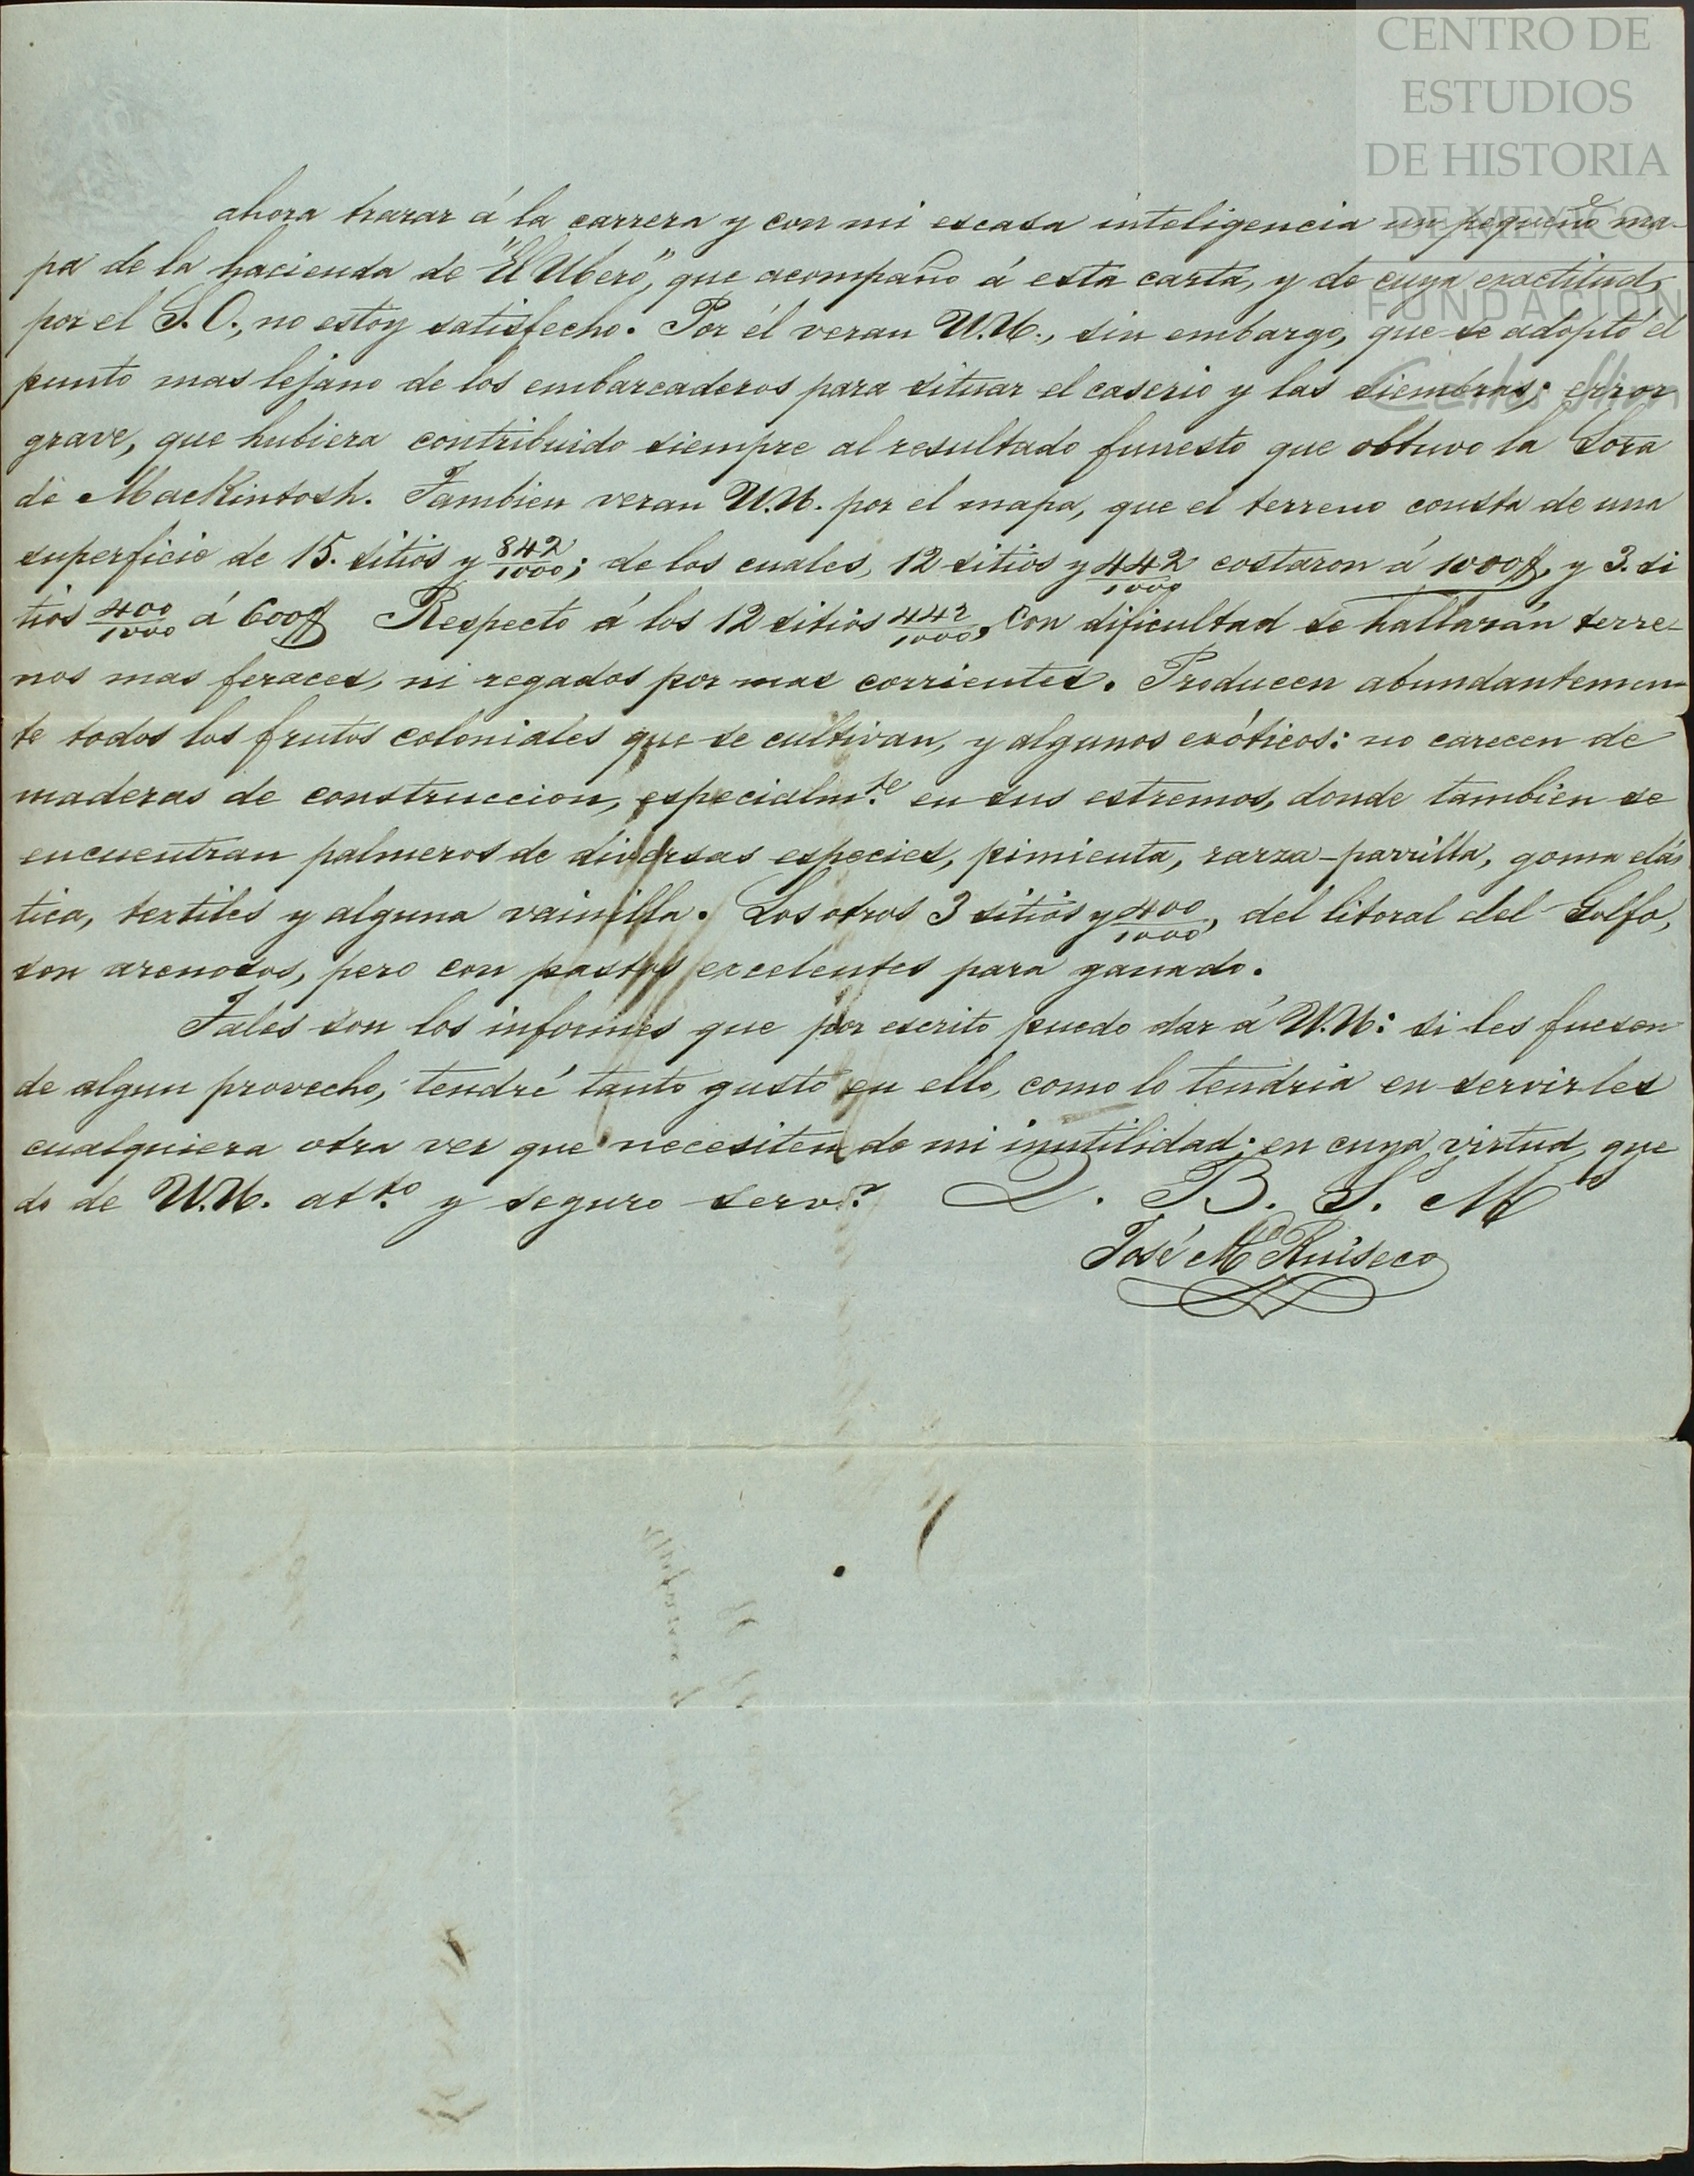 CENTRO DE
ESTUDIOS
DE HISTORIA
DE MEXICO
FUNDACIÓN
Carlos Slim
ahora trazar á la carrera y con mi escasa inteligencia un pequeño ma-
pa de la hacienda de "El Ubero", que acompaño á esta carta, y de cuya exactitud,
por el S. O., no estoy satisfecho. Por él veran U.U., sin embargo, que se adoptó el
punto mas lejano de los embarcaderos para situar el caserio y las siembras; error
grave, que hubiera contribuido siempre al resultado funesto que obtuvo la Sora
de MacKintosh. Tambien veran U.U. por el mapa, que el terreno consta de una
superficie de 15. sitios y 842/1000; de los cuales, 12 sitios y 442/1000 costaron á 1000 $, y 3. si
tios 400/1000 á 600 $ Respecto á los 12 sitios 442/1000, con dificultad se hallarán terre-
nos mas feraces, ni regados por mas corrientes. Producen abundantemen-
te todos los frutos coloniales que se cultivan, y algunos exóticos: no carecen de
maderas de construccion, especialm.te en sus estremos, donde tambien se
encuentran palmeros de diversas especies, pimienta, zarza-parrilla, goma elás
tica, textiles y alguna vainilla. Los otros 3 sitios y 400/1000, del litoral del Golfo,
son arenosos, pero con pastos excelentes para ganado.
Tales son los informes que por escrito puedo dar á U.U: si les fuesen
de algun provecho, tendré tanto gusto en ello, como lo tendria en servirles
cualquiera otra vez que necesiten de mi inutilidad; en cuya virtud, que
do de U.U. att.o y seguro serv.r Q. B. S. M.s
José M.a Ruiseco